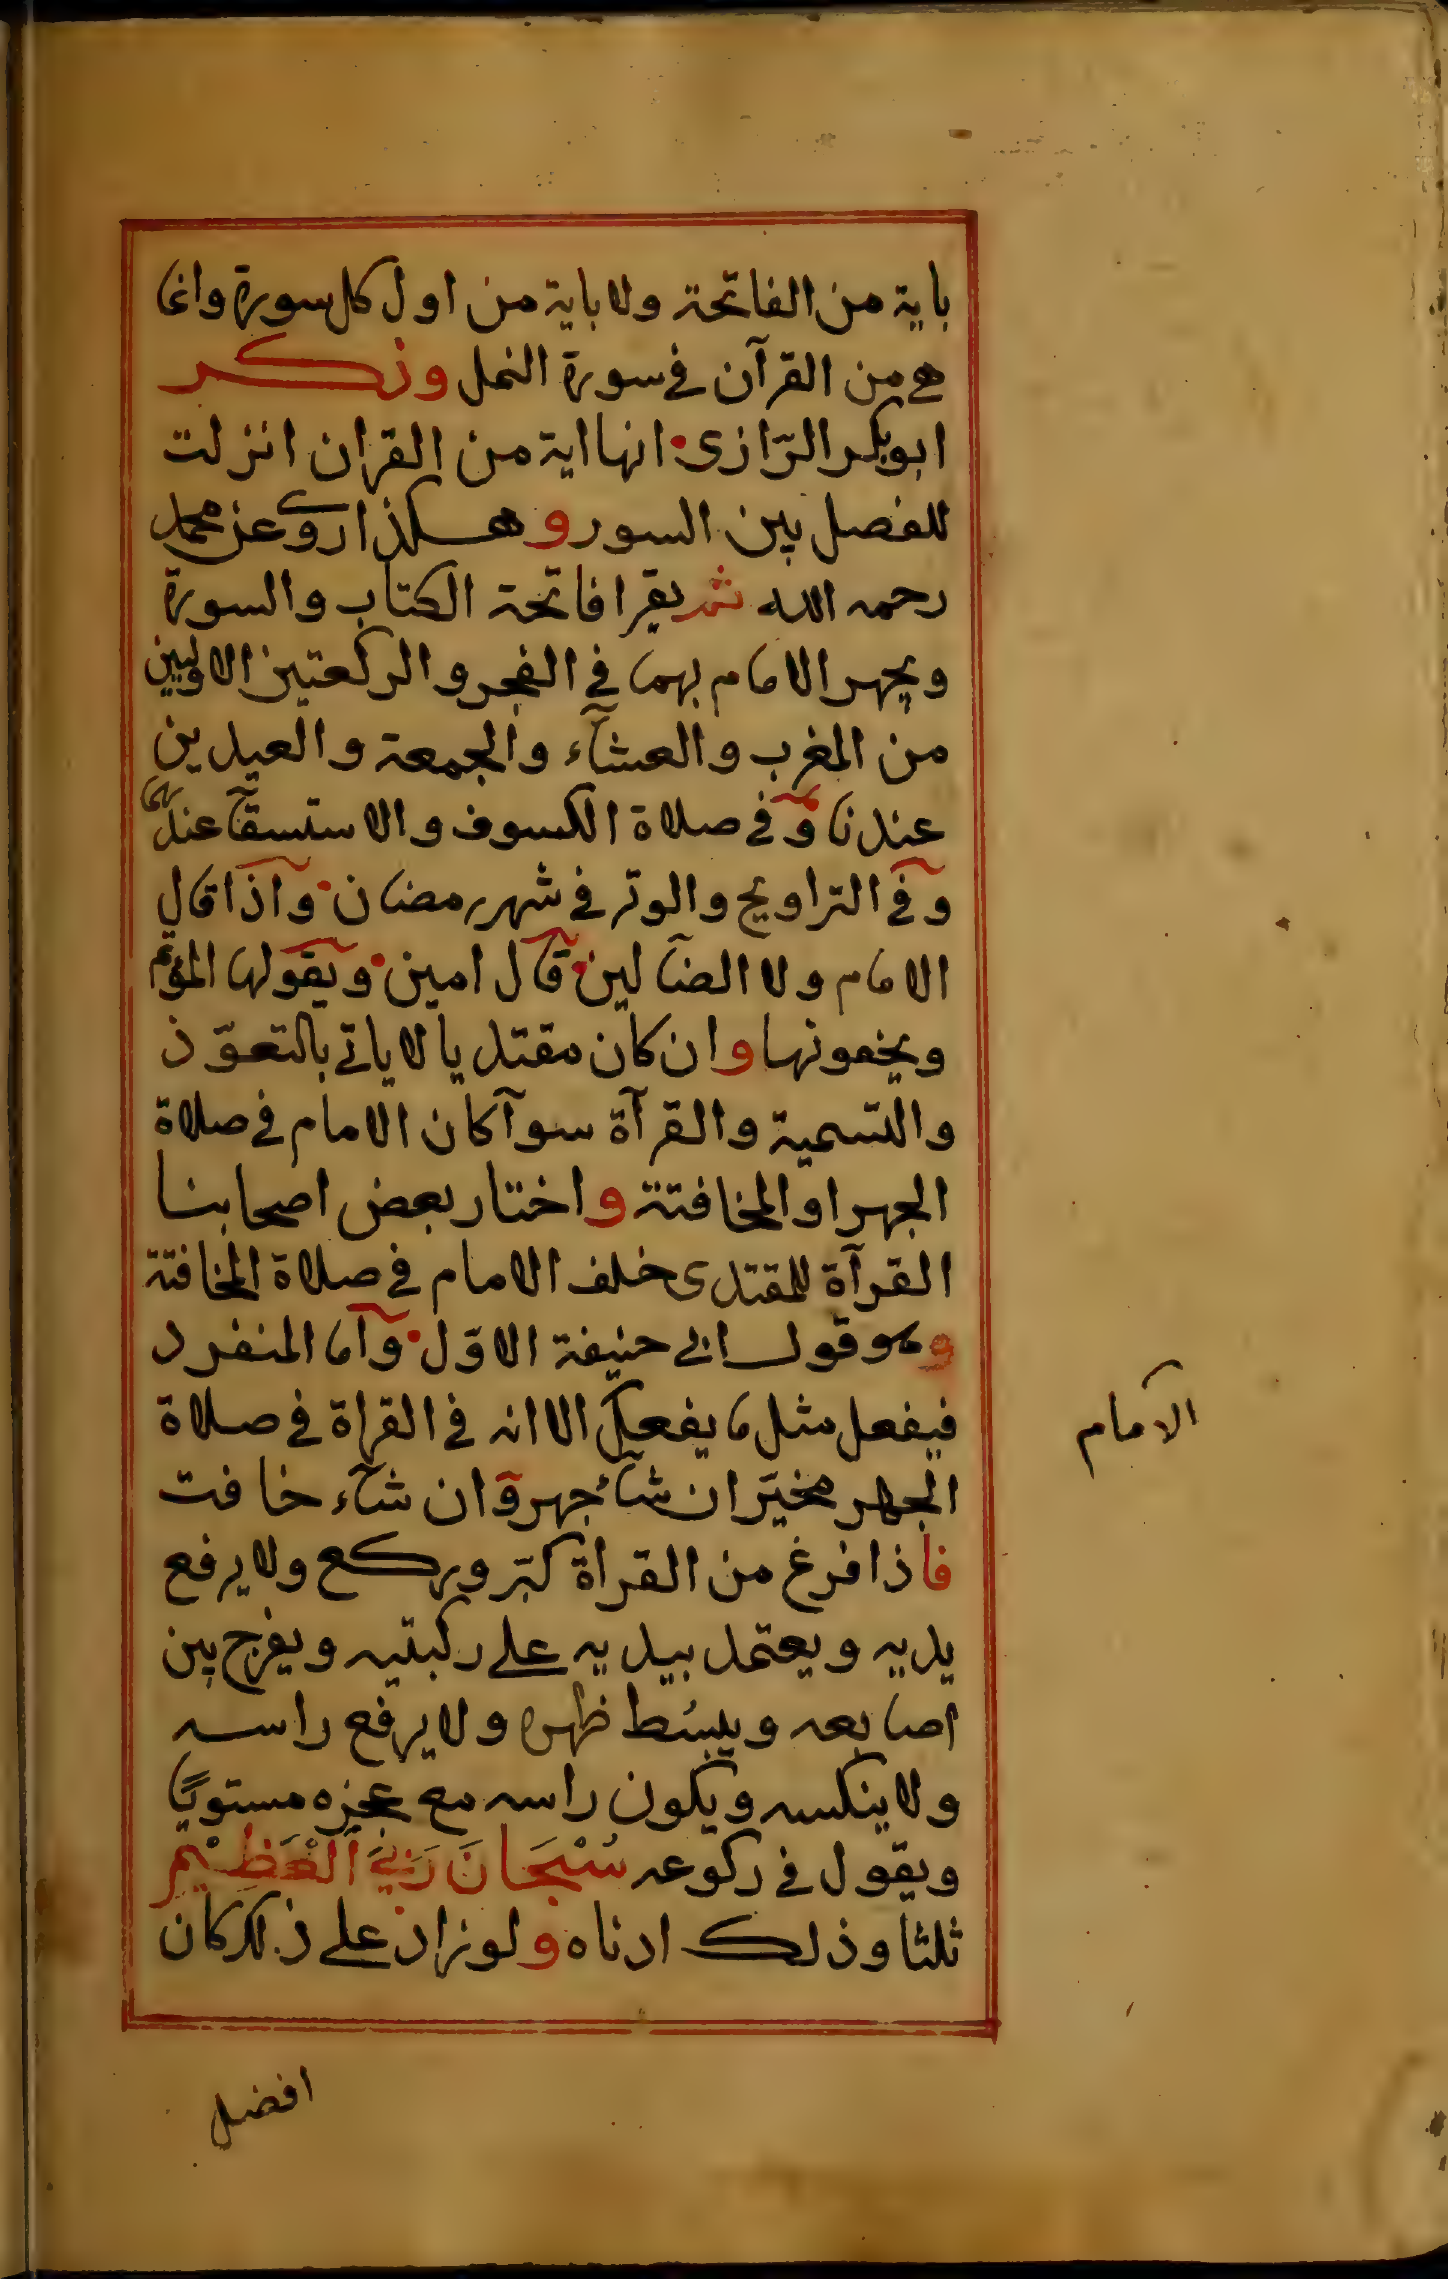 باية من الفاتحة ولا باية من اول كل سورة وانما
هى من القرآن فى سورة النمل وذكر
ابو بكر الرّازى انها اية من القران انزلت
للفصل بين السور وهكذا روى عن محمد
رحمه الله ثم يقرا فاتحة الكتاب والسورة
ويجهر الامام بهما فى الفجر والركعتين الاوليين
من المغرب والعشآء والجمعة والعيدين
عندنا وفى صلاة الكسوف والاستسقآ عندهما
وفى التراويح والوتر فى شهر رمضان واذا قال
الامام ولا الضآلين قال امين ويقولها المؤتم
ويخفونها وان كان مقتديا لا ياتى بالتعوّذ
والتسمية والقرآة سوآ كان الامام فى صلاة
الجهر او المخافتة واختار بعض اصحابنا
القرآة للمقتدى خلف الامام فى صلاة المخافتة
وهو قول ابى حنيفة الاوّل واما المنفرد
فيفعل مثل ما يفعل الا انه فى القراة فى صلاة
الامام
الجهر مخيّر ان شآء جهر وان شآء خافت
فاذا فرغ من القراة كبّر وركع ولا يرفع
يديه ويعتمد بيديه على ركبتيه ويفرج بين
اصابعه ويبسُط ظهره ولا يرفع راسه
ولا ينكسه ويكون راسه مع عجزه مستويًا
ويقول فى ركوعه سُبْحَانَ رَبِّيَ الْعَظِيْمِ
ثلثا وذلك ادناه ولو زاد على ذلك كان
افضل